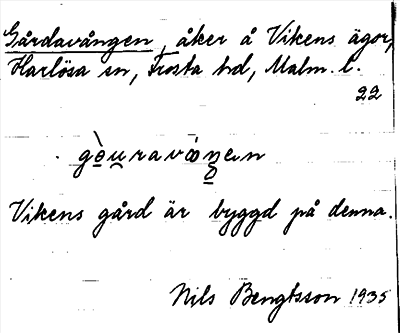 Gårdavången, åker å Vikens ägor,
Harlösa sn, Frosta hd, Malm. l.
22
Vikens gård är byggd på denna.
Nils Bengtsson 1935